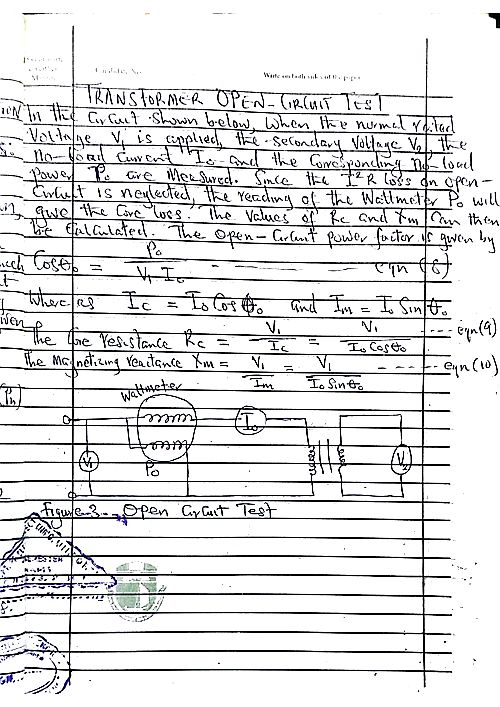 Candidate No
Write on both sides of the paper
TRANSFORMER OPEN-CIRCUIT TEST
In the Circuit shown below, When the normal rated
Voltage V₁ is applied, the secondary Voltage V₂, the
no-load Current I₀ and the Corresponding no-load
power P₀ are Measured. Since the I²R loss on open-
Circuit is neglected, the reading of the Wattmeter P₀ will
give the Core loss. The values of Rc and Xm Can then
be Calculated. The Open-Circuit power factor is given by
Cosθ₀ = P₀ / V₁ I₀ ------ eqn (8)
Where as Ic = I₀ Cos θ₀ and Im = I₀ Sin θ₀
the Core resistance Rc = V₁ / Ic = V₁ / I₀ Cosθ₀ ---- eqn(9)
the Magnetizing reactance Xm = V₁ / Im = V₁ / I₀ Sinθ₀ ---- eqn(10)
Wattmeter
I₀
V₁
P₀
V₂
Figure 3 -- Open Circuit Test